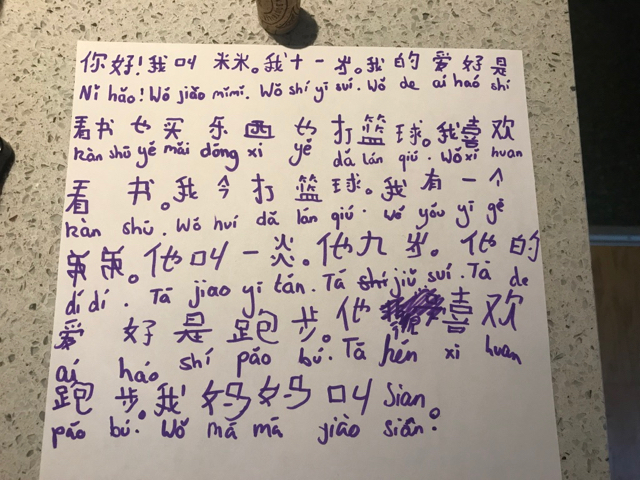 你好!我叫 米米。我十一岁。我的 爱 好 是
Ni hǎo! Wǒ jiǎo mimi. Wǒ shí yī suí. Wǒ de ai haó shí
看书 也 买 东 西 也 打 篮 球。我喜 欢
kàn shū yě mǎi dōng xi yě dǎ lán qiú. Wǒ xi huan
看 书。我 今 打 篮 球。我 有 一 个
kàn shū. Wǒ huí dǎ lán qiú. Wǒ yǒu yī gè
弟 弟。他叫 一 炎。他九 岁。他的
dí dí. Tā jiao yi tán. Tā jiǔ suí. Tā de
爱 好 是 跑 步。他 喜 欢
ai háo shí pǎo bú. Tā hěn xi huan
跑 步。我 妈 妈 叫 Sian。
pǎo bú. Wǒ mā mā jiào siān.